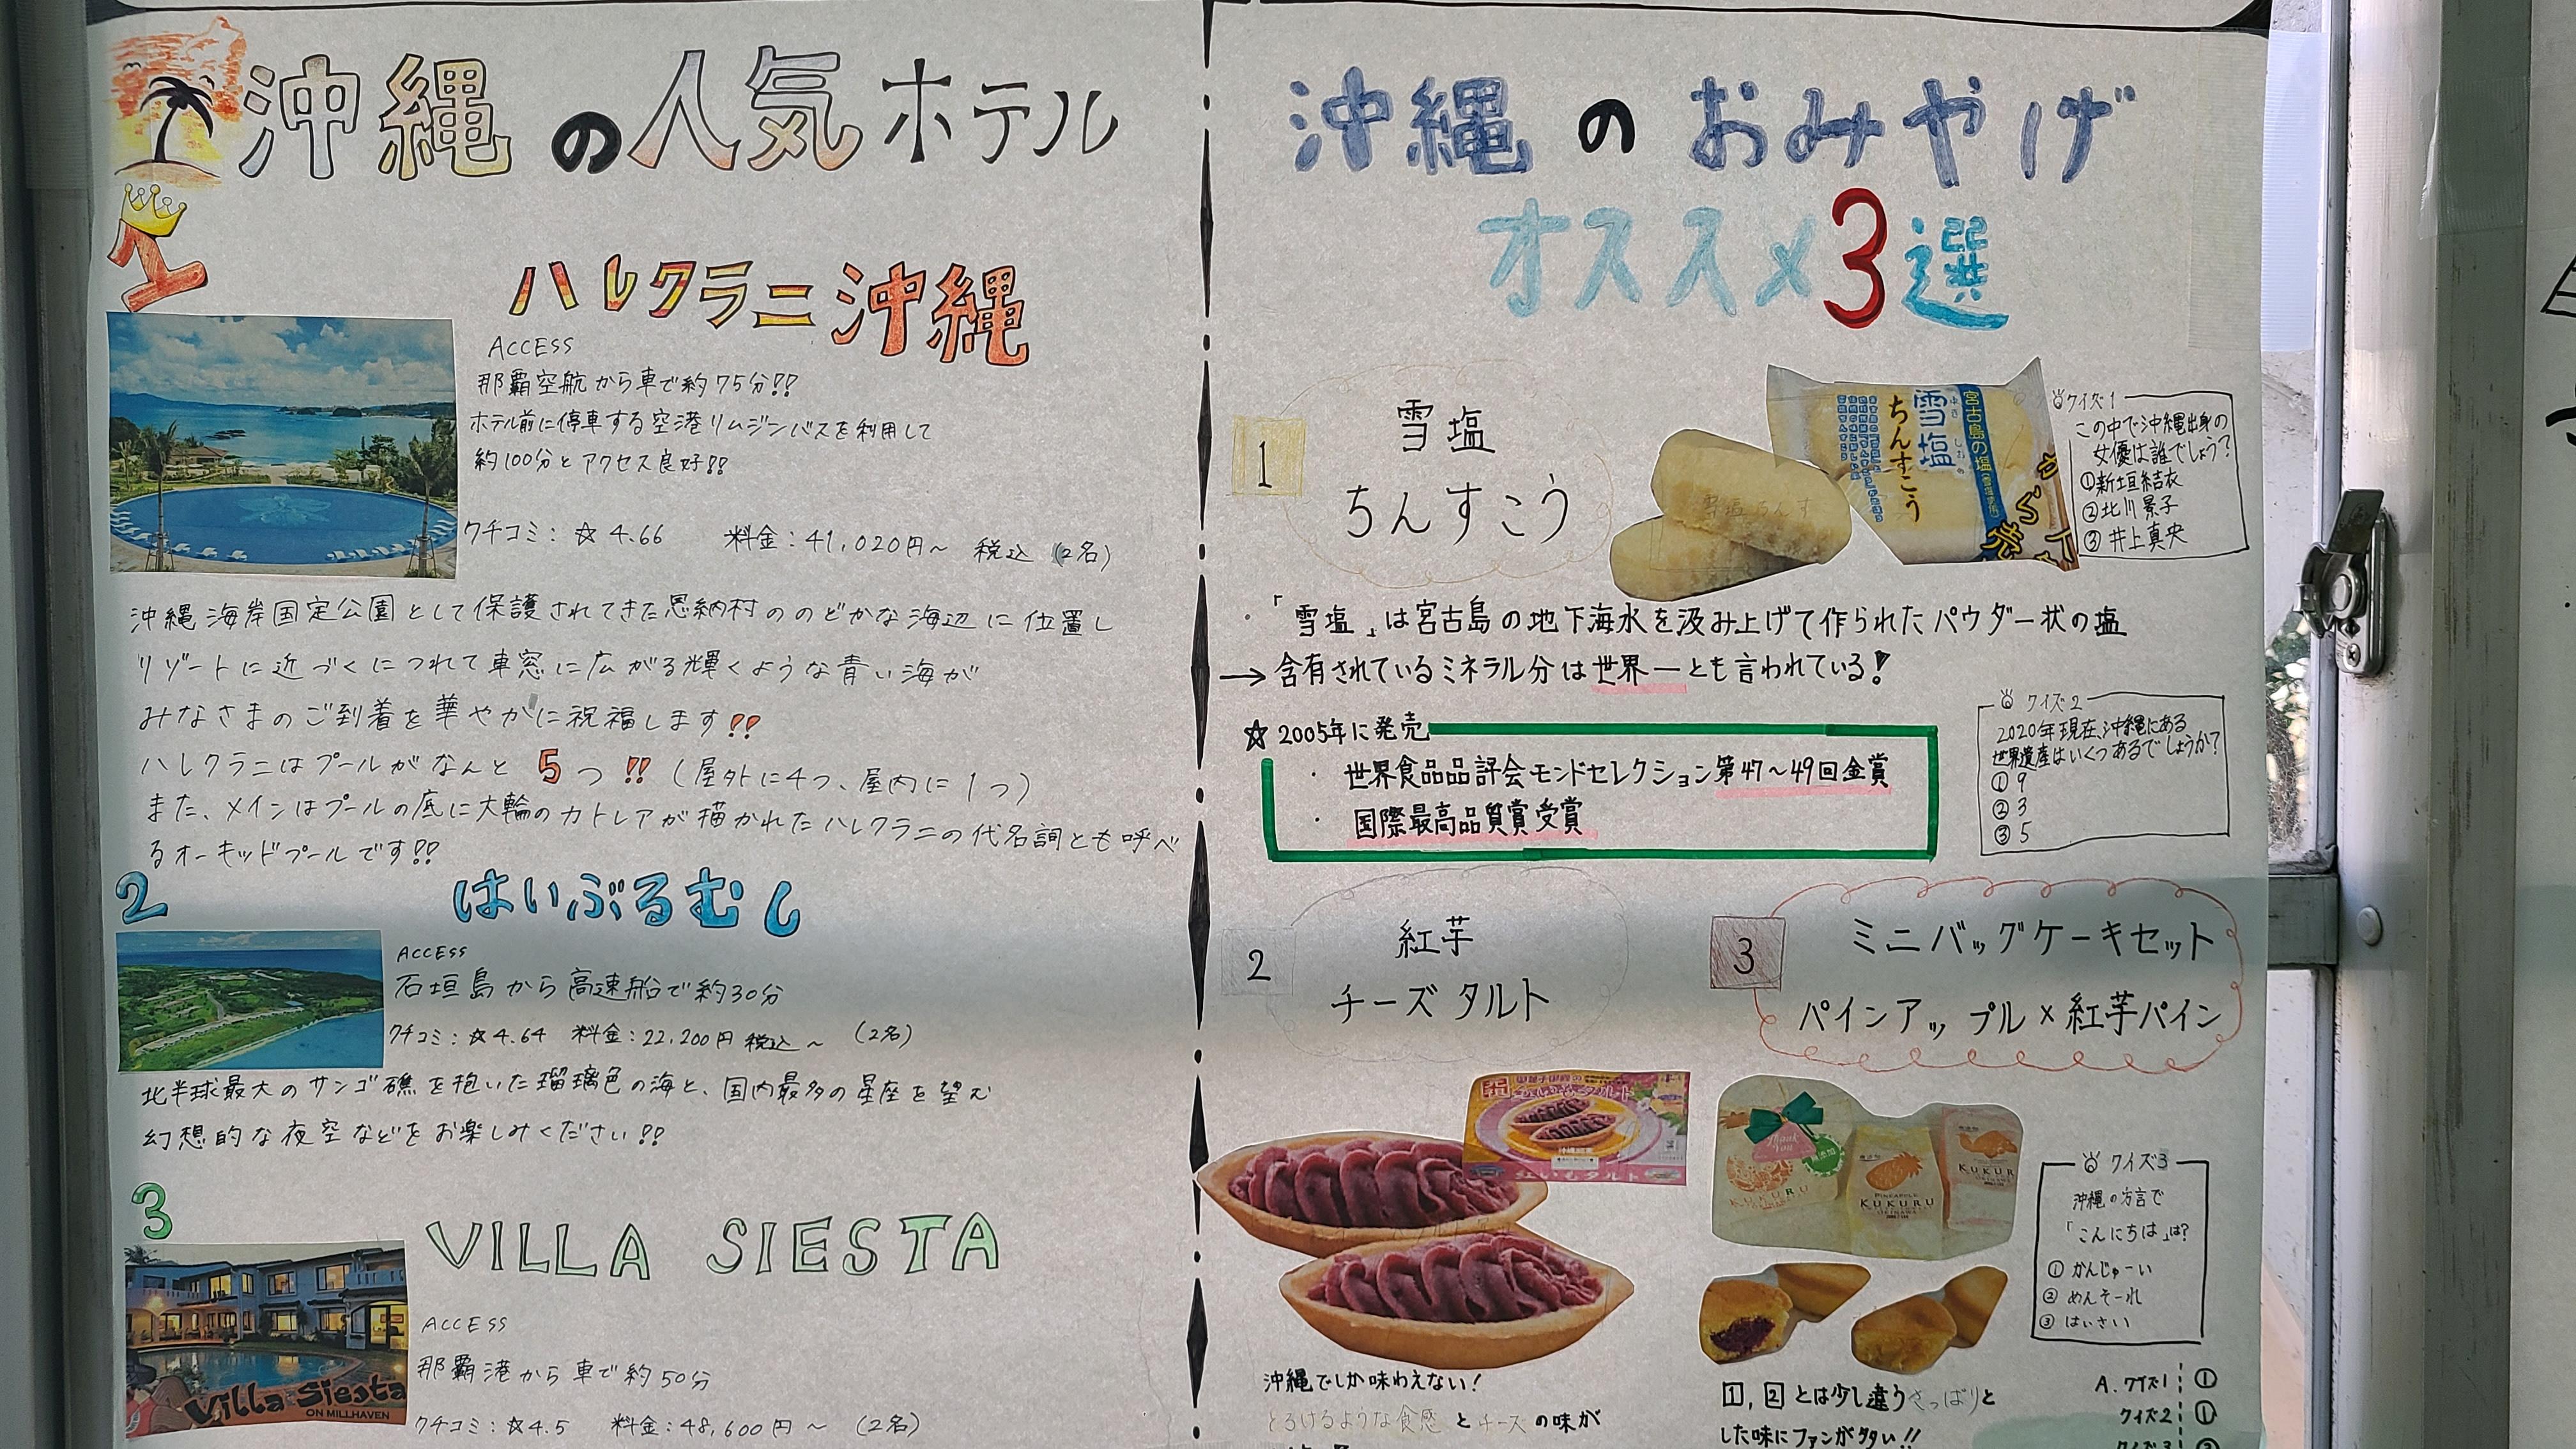 沖縄の人気ホテル
1
ハレクラニ沖縄
ACCESS
那覇空航から車で約75分!!
ホテル前に停車する空港リムジンバスを利用して
約100分とアクセス良好!!
クチコミ:☆4.66 料金:41,020円〜 税込 (2名)
沖縄海岸国定公園として保護されてきた恩納村ののどかな海辺に位置し
リゾートに近づくにつれて車窓に広がる輝くような青い海が
みなさまのご到着を華やかに祝福します!!
ハレクラニはプールがなんと5つ!!(屋外に4つ、屋内に1つ)
また、メインはプールの底に大輪のカトレアが描かれたハレクラニの代名詞とも呼べ
るオーキッドプールです!!
2
はいぶるむし
ACCESS
石垣島から高速船で約30分
クチコミ:☆4.64 料金:22,200円 税込〜 (2名)
北半球最大のサンゴ礁を抱いた瑠璃色の海と、国内最多の星座を望む
幻想的な夜空などをお楽しみください!!
3
VILLA SIESTA
Villa Siesta
ON MILLHAVEN
ACCESS
那覇港から車で約50分
クチコミ:☆4.5 料金:48,600円〜 (2名)
沖縄のおみやげ
オススメ3選
1
雪塩
ちんすこう
宮古島の塩
雪塩
ゆきしお
ちんすこう
クイズ1
この中で沖縄出身の
女優は誰でしょう?
①新垣結衣
②北川景子
③井上真央
・「雪塩」は宮古島の地下海水を汲み上げて作られたパウダー状の塩
→含有されているミネラル分は世界一とも言われている!
☆2005年に発売
・世界食品品評会モンドセレクション第47〜49回金賞
・国際最高品質賞受賞
クイズ2
2020年現在、沖縄にある
世界遺産はいくつあるでしょうか?
①9
②3
③5
2
紅芋
チーズタルト
3
ミニバッグケーキセット
パインアップル×紅芋パイン
Thank You
KUKURU
PINEAPPLE
KUKURU
OKINAWA
KUKUR
クイズ3
沖縄の方言で
「こんにちは」は?
①かんじゅーい
②めんそーれ
③はいさい
沖縄でしか味わえない!
とろけるような食感とチーズの味が
1,2とは少し違うさっぱりと
した味にファンが多い!!
A.クイズ1 ①
クイズ2 ①
クイズ3